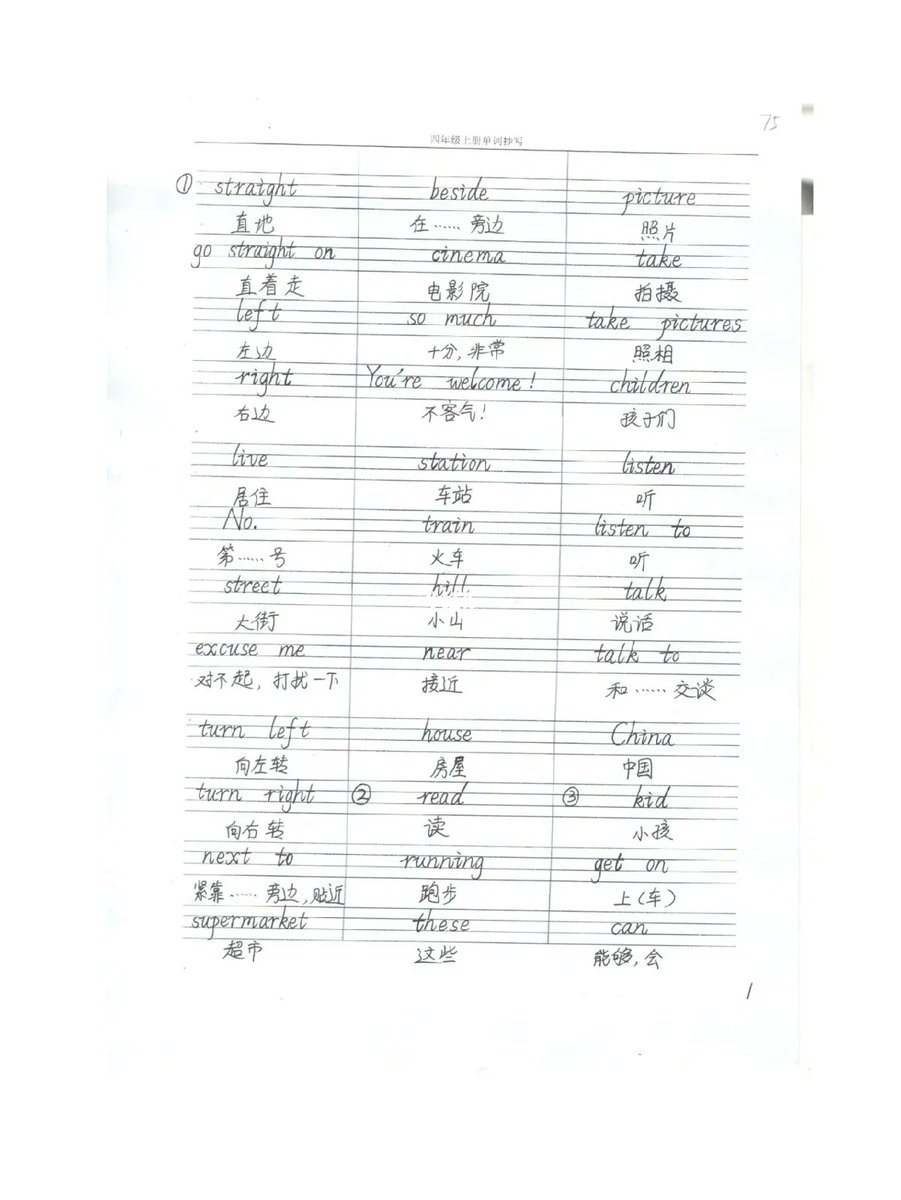 75
四年级上册单词抄写
① straight beside picture
直地 在……旁边 照片
go straight on cinema take
直着走 电影院 拍摄
left so much take pictures
左边 十分,非常 照相
right You're welcome! children
右边 不客气! 孩子们
live station listen
居住 车站 听
No. train listen to
第……号 火车 听
street hill talk
大街 小山 说话
excuse me near talk to
对不起,打扰一下 接近 和……交谈
turn left house China
向左转 房屋 中国
turn right ② read ③ kid
向右转 读 小孩
next to running get on
紧靠……旁边,贴近 跑步 上(车)
supermarket these can
超市 这些 能够,会
1